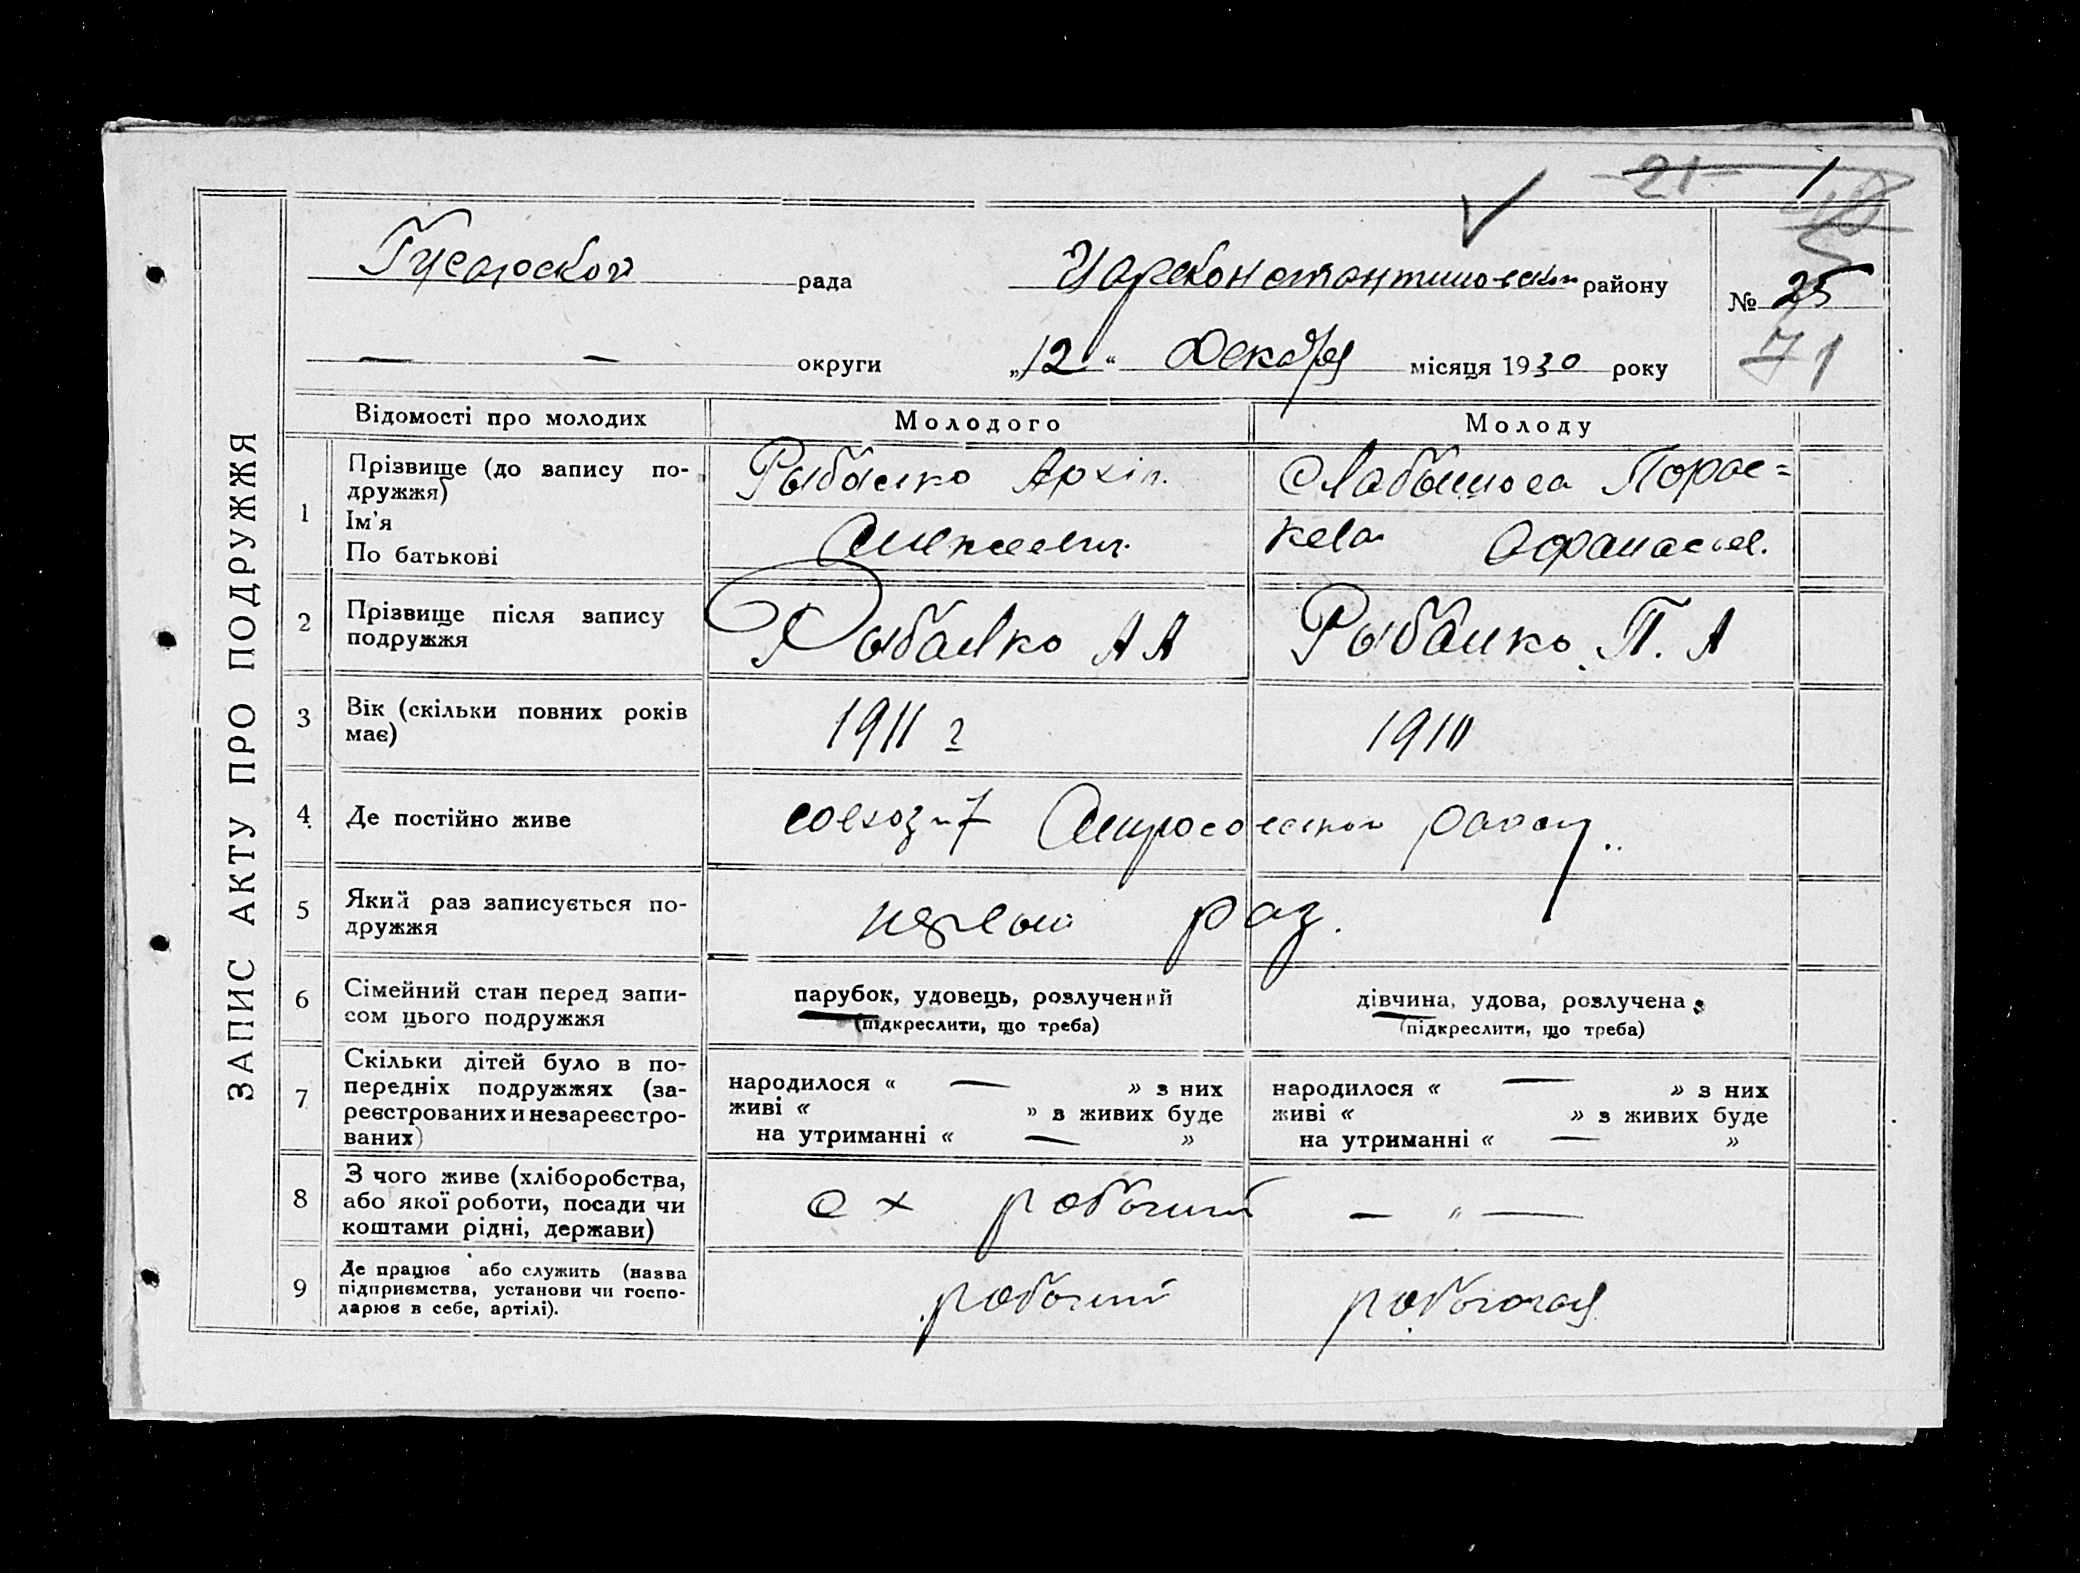 21 1
Гусарской рада Цареконстантиновский району № 25
— — округи „12“ Декабря місяця 1930 року 71
ЗАПИС АКТУ ПРО ПОДРУЖЖЯ
Відомості про молодих Молодого Молоду
1 Прізвище (до запису по-
дружжя)
Ім'я
По батькові
Рыбалко Архіп.
Алексеевич.
Слабышова Порас=
кева Афанасьев.
2 Прізвище після запису
подружжя
Рыбалко А А
Рыбалко П. А
3 Вік (скільки повних років
має)
1911 г
1910
4 Де постійно живе
совхоз 7 раз
5 Який раз записується по-
дружжя
первый раз.
6 Сімейний стан перед запи-
сом цього подружжя
парубок, удовець, розлучений
(підкреслити, що треба)
дівчина, удова, розлучена
(підкреслити, що треба)
7 Скільки дітей було в по-
передніх подружжях (за-
реєстрованих и незареєстро-
ваних)
народилося « — » з них
живі « » з живих буде
на утриманні « — »
народилося « — » з них
живі « » з живих буде
на утриманні « — »
8 З чого живе (хліборобства,
або якої роботи, посади чи
коштами рідні, держави)
с х рабочий
— " —
9 Де працює або служить (назва
підприємства, установи чи госпо-
дарює в себе, артілі).
рабочий
рабочая